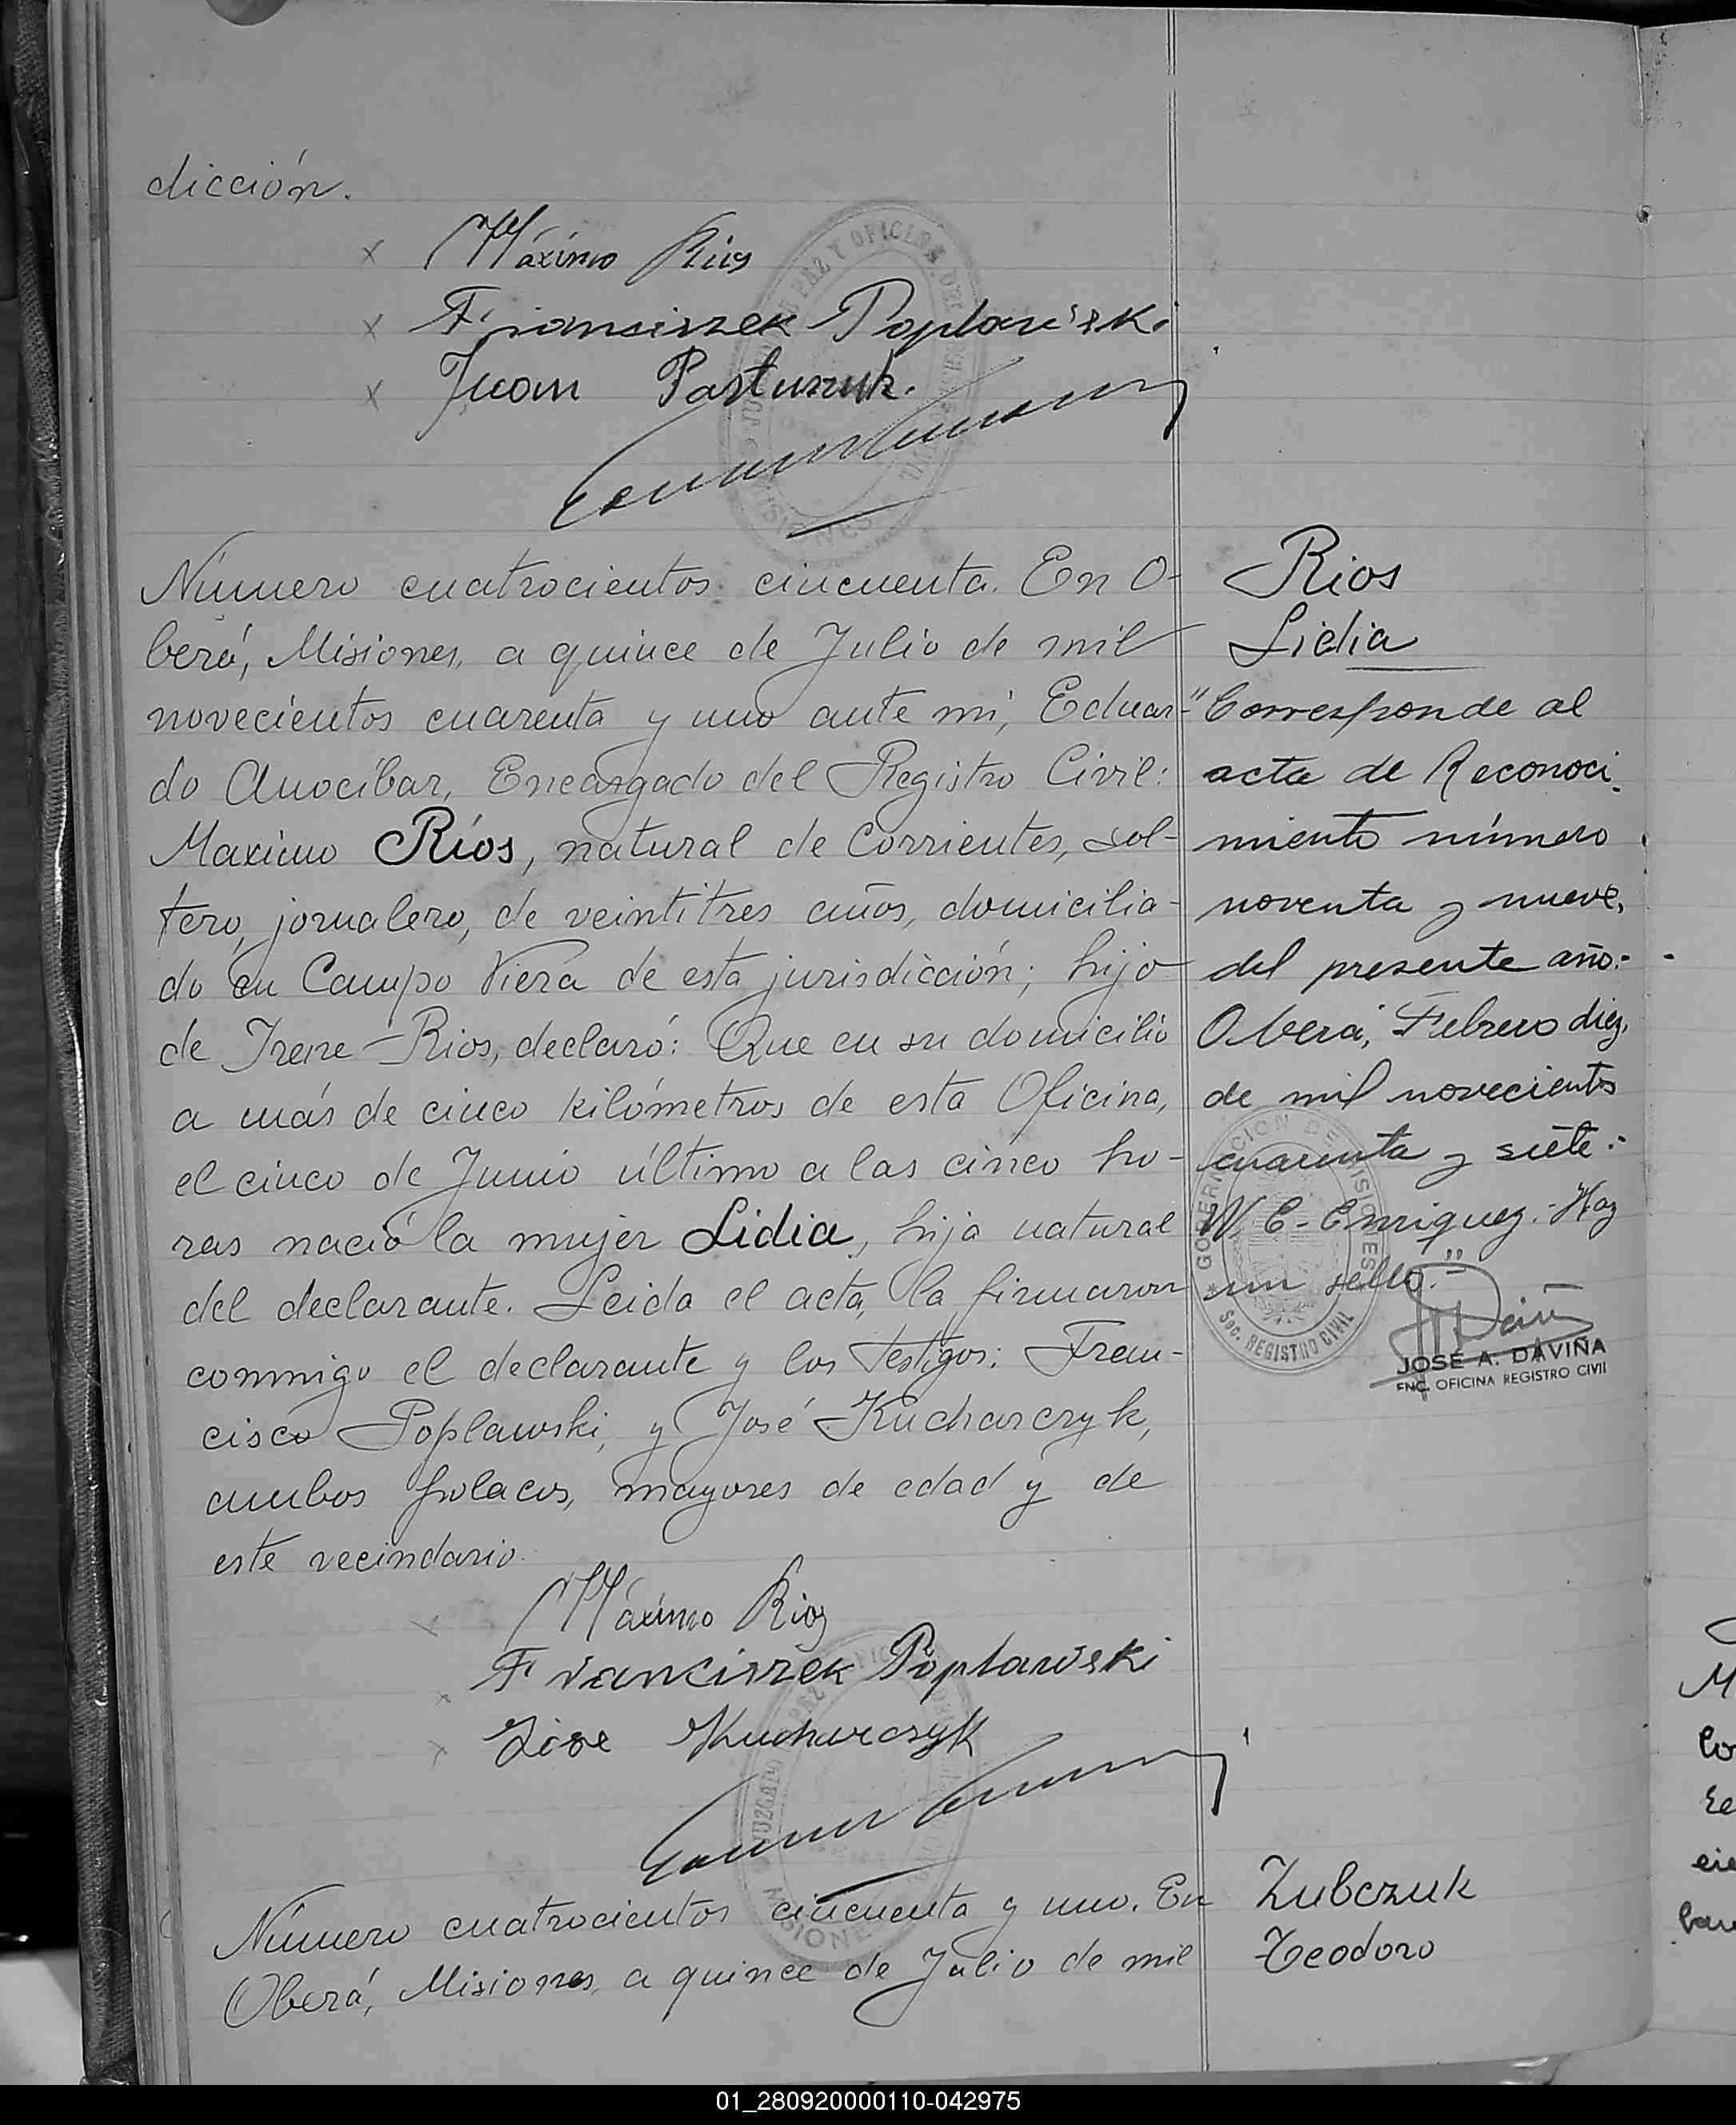 dicción.
x Máximo Rios
x Franciszek Poplawski
x Juan Pastuszuk.
Número cuatrocientos cincuenta. En O-
berá, Misiones, a quince de Julio de mil
novecientos cuarenta y uno ante mí, Eduar-
do Anocíbar, Encargado del Registro Civil:
Maximo Ríos, natural de Corrientes, sol-
tero, jornalero, de veintitres años, domicilia-
do en Campo Viera de esta jurisdicción; hijo
de Irene Rios, declaró: Que en su domicilio
a más de cinco kilómetros de esta Oficina,
el cinco de Junio último a las cinco ho-
ras nació la mujer Lidia, hija natural
del declarante. Leida el acta, la firmaron
conmigo el declarante y los testigos: Fran-
cisco Poplawski, y José Kucharczyk,
ambos polacos, mayores de edad y de
este vecindario.
x Máximo Rios
x Franciszek Poplawski
x Jose Kucharczyk
Rios
Lidia
"Corresponde al
acta de Reconoci-
miento número
noventa y nueve,
del presente año.-
Oberá, Febrero diez,
de mil novecientos
cuarenta y siete.-
W. E. Enriquez.- Hay
un sello.-"
GOBERNACION DE MISIONES
Sec. REGISTRO CIVIL
JOSÉ A. DAVIÑA
ENC. OFICINA REGISTRO CIVIL
Número cuatrocientos cincuenta y uno. En
Oberá, Misiones, a quince de Julio de mil
Zubczuk
Teodoro
01_280920000110-042975